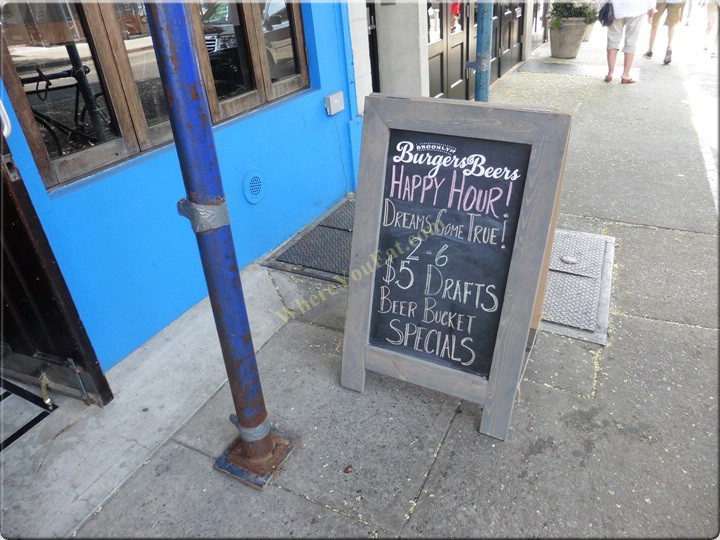 BROOKLYN
Burgers & Beers
HAPPY HOUR!
DREAMS COME TRUE!
2-6
$5 DRAFTS
BEER BUCKET
SPECIALS
WhereYouEat.com